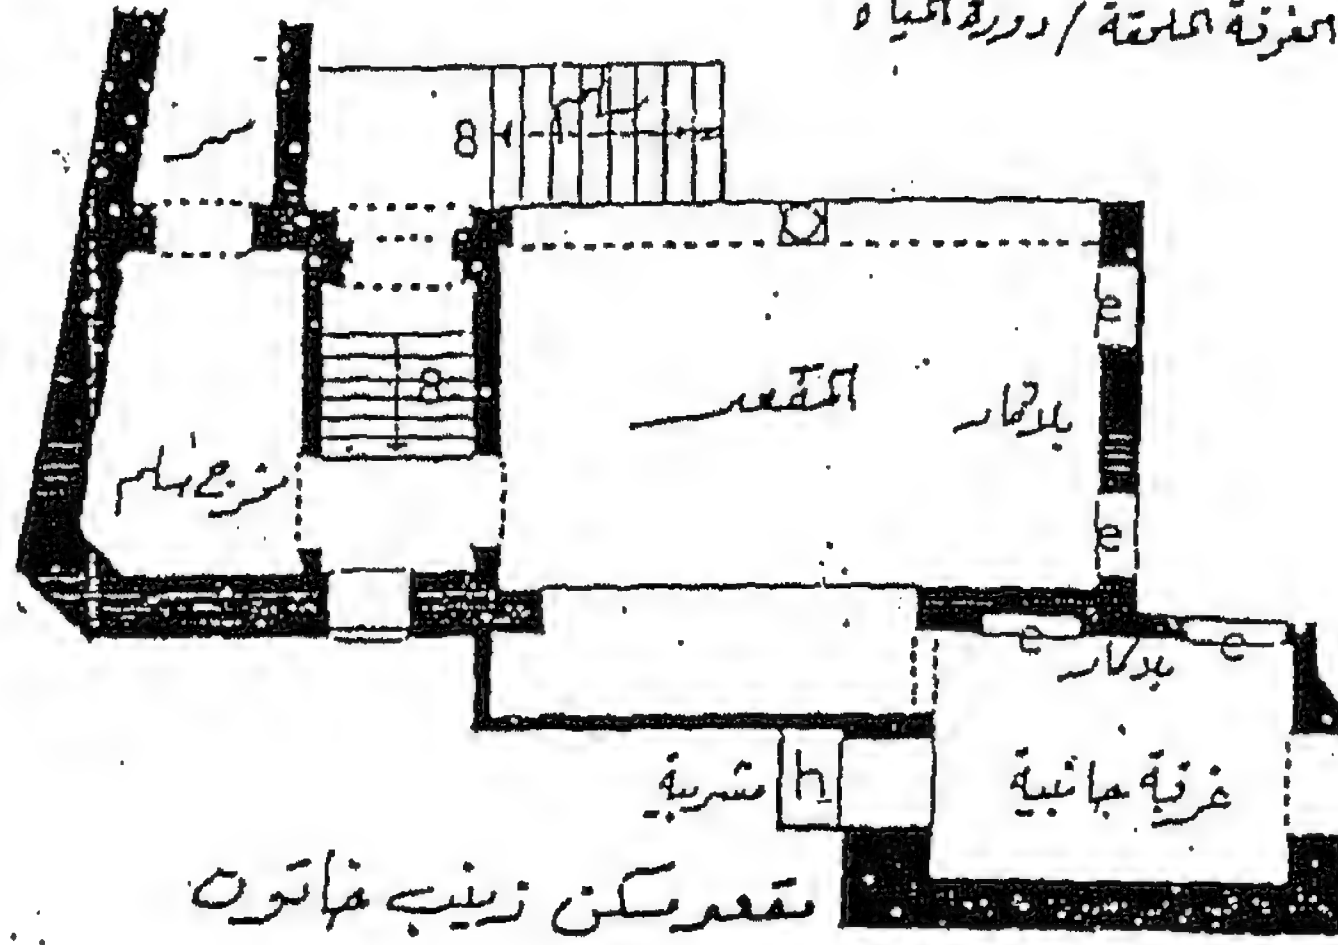 الغرفة الملحقة / دورة المياه
ممر
8
8
e
المقعد
بلاكار
e
e
بلاكار
e
مشربية
h
غرفة جانبية
مقعد سكن زينب خاتون